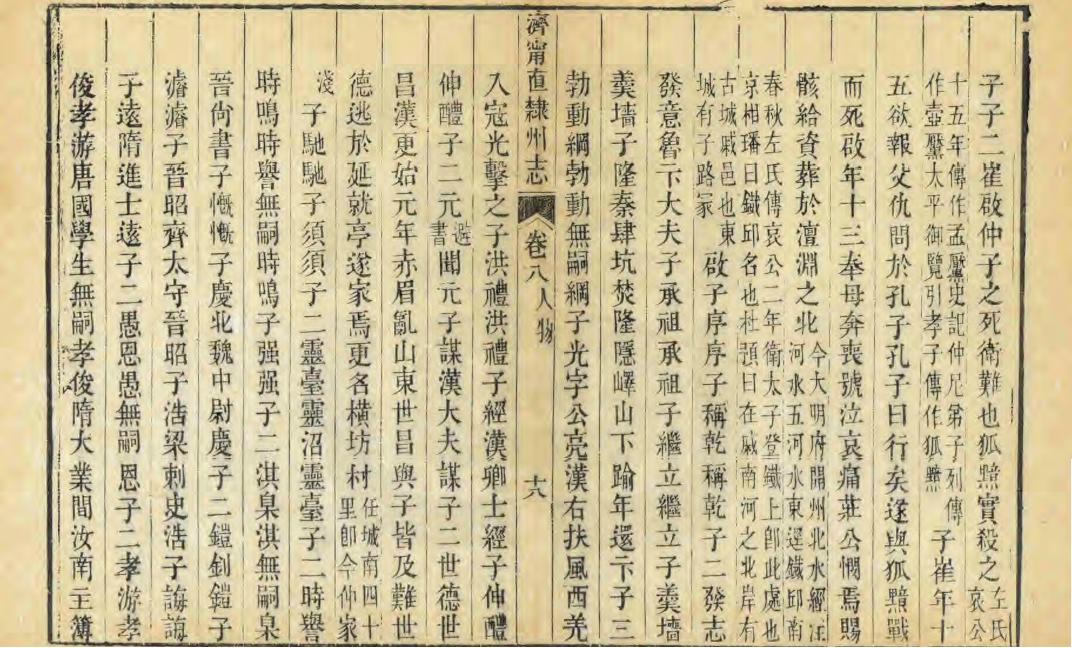 子子二崔啟仲子之死衛難也狐黶實殺之左氏
哀公
十五年傳作孟黶史記仲尼弟子列傳
作壺黶太平御覽引孝子傳作狐黯子崔年十
五欲報父仇問於孔子孔子曰行矣遂與狐黯戰
而死啟年十三奉母奔喪號泣哀痛莊公憫焉賜
骸給資葬於澶淵之北今大明府開州北水經注
河水五河水東逕鐵邱南
春秋左氏傳哀公二年衛太子登鐵上卽此處也
京相璠曰鐵邱名也杜預曰在戚南河之北岸有
古城戚邑也東
城有子路冢啟子序序子稱乾稱乾子二發志
發意魯下大夫子承祖承祖子繼立繼立子羹墻
羹墻子隆秦肆坑焚隆隱嶧山下踰年還卞子三
勃動綱勃動無嗣綱子光字公亮漢右扶風西羌
濟甯直隸州志
卷八人物
十八
入寇光擊之子洪禮洪禮子經漢卿士經子伸醴
伸醴子二元遊
書聞元子謀漢大夫謀子二世德世
昌漢更始元年赤眉亂山東世昌與子皆及難世
德逃於延就亭遂家焉更名橫坊村任城南四十
里卽今仲家
淺子馳馳子須須子二靈臺靈沼靈臺子二時譽
時鳴時譽無嗣時鳴子强强子二淇臬淇無嗣臬
晉尙書子慨慨子慶北魏中尉慶子二鎧釗鎧子
濬濬子晉昭齊太守晉昭子浩梁刺史浩子誨誨
子遠隋進士遠子二愚恩愚無嗣恩子二孝游孝
俊孝游唐國學生無嗣孝俊隋大業間汝南主簿